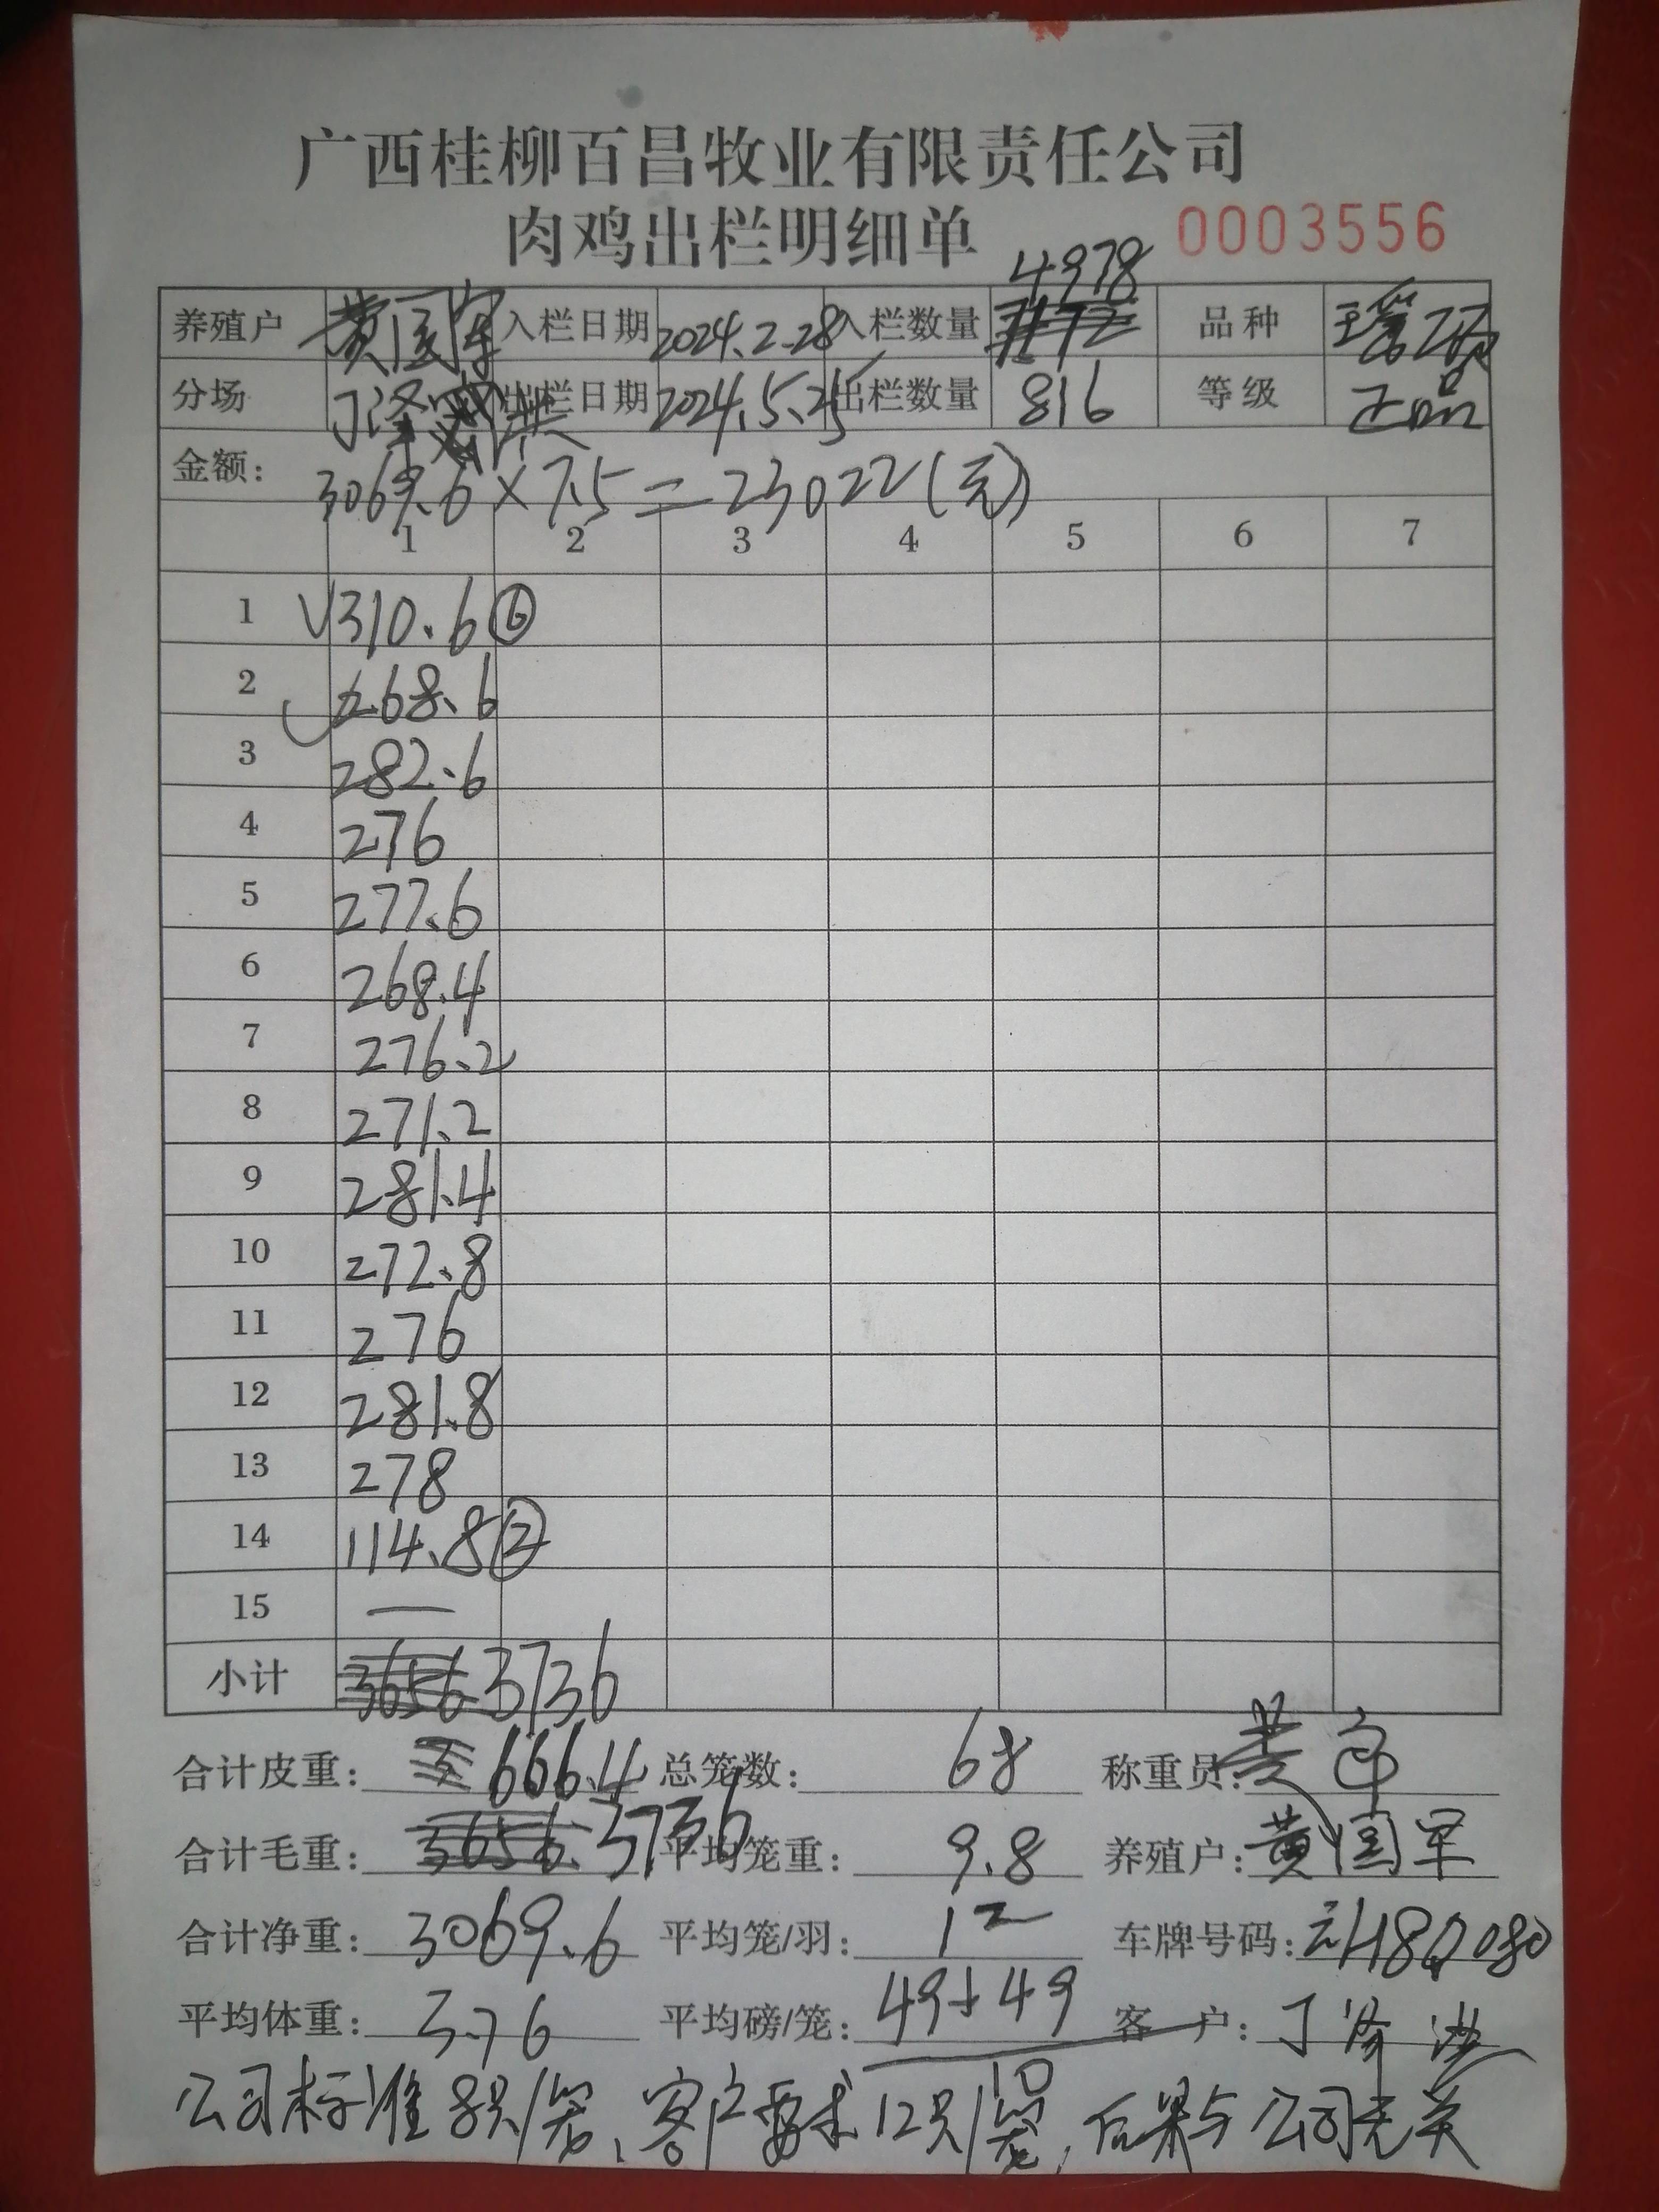 广西桂柳百昌牧业有限责任公司
肉鸡出栏明细单 0003556
4978
养殖户 黄国军 入栏日期 2024.2.28 入栏数量 品种 瑶
分场 丁泽洪 出栏日期 2024.5.25 出栏数量 816 等级 正品
金额: 3069.6×7.5=23022(元)
1 2 3 4 5 6 7
1 √310.6 ⑥
2 268.6
3 282.6
4 276
5 277.6
6 268.4
7 276.2
8 271.2
9 281.4
10 272.8
11 276
12 281.8
13 278
14 114.8 ②
15 —
小计 3656 3736
合计皮重: 666.4 总笼数: 68 称重员: 黄
合计毛重: 3656 3736 平均笼重: 9.8 养殖户: 黄国军
合计净重: 3069.6 平均笼/羽: 12 车牌号码:
平均体重: 3.76 平均磅/笼: 49+49 客户: 丁泽洪
10
公司标准8只/笼、客户要求12只/笼,后果与公司无关